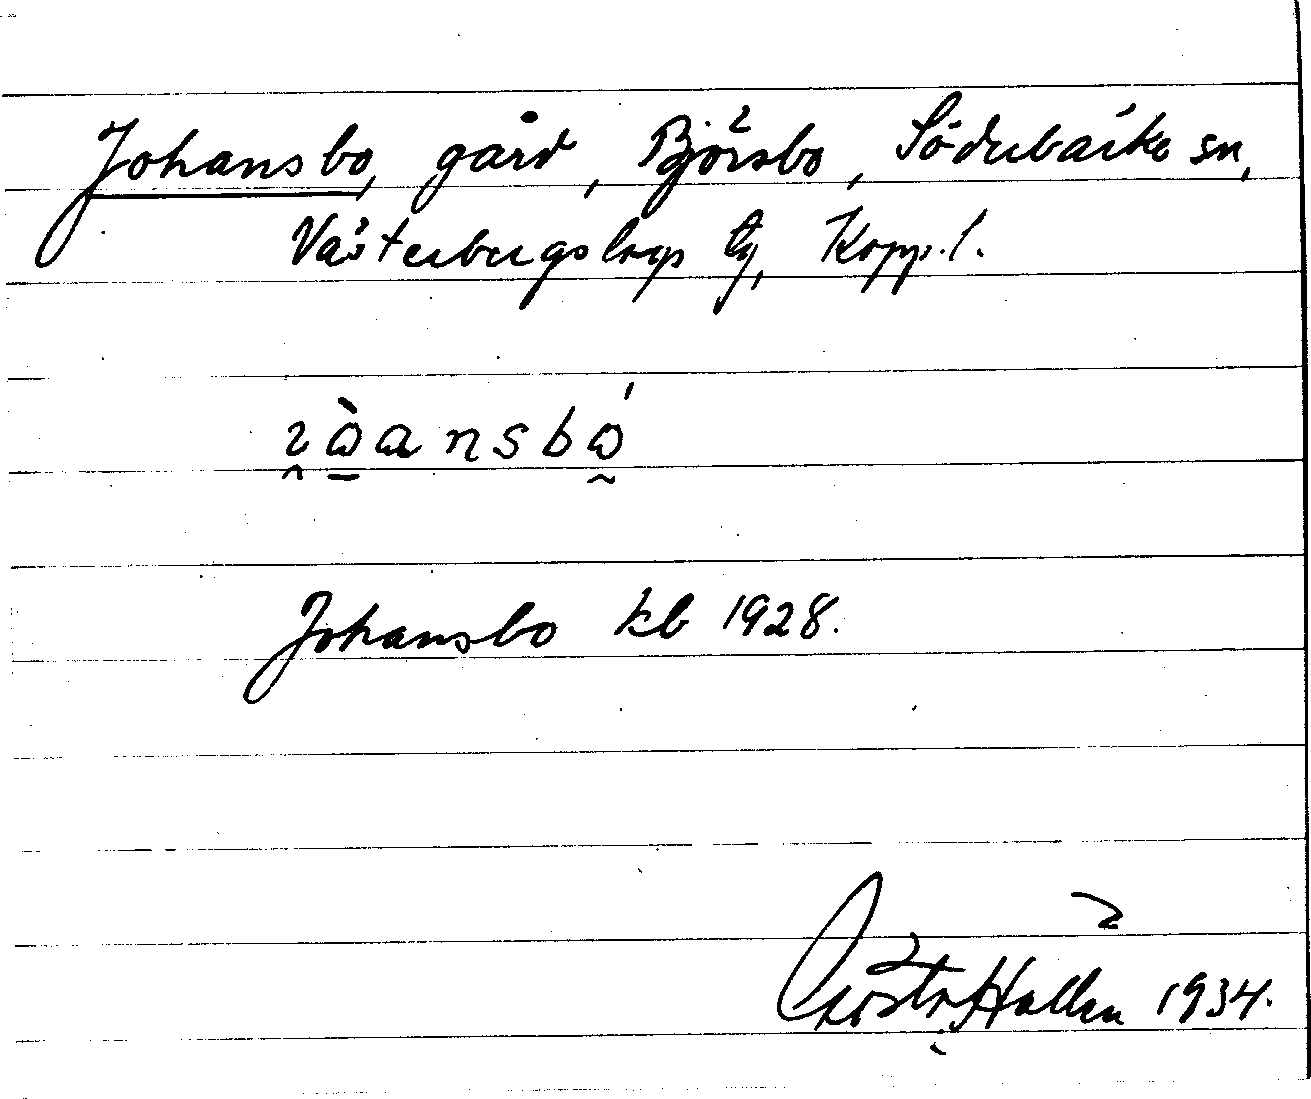 Johansbo, gård, Björsbo, Söderbärke sn,
Västerbergslags tg, Kopp. l.
Johansbo kb 1928.
Gösta Hallén 1934.